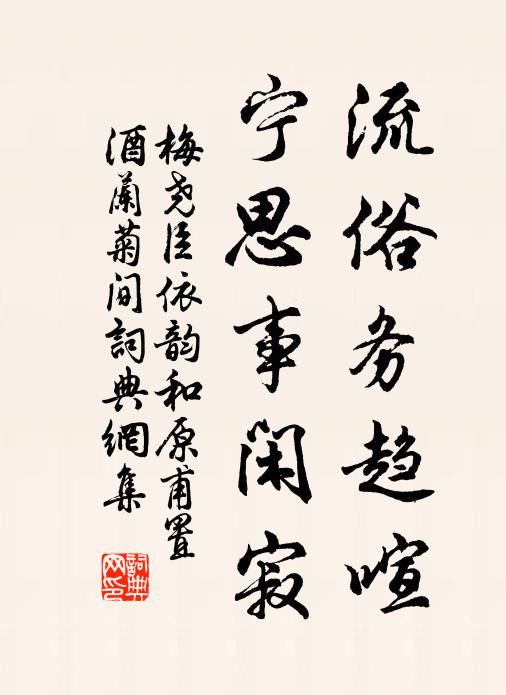 流俗务趋喧
宁思事闲寂
梅尧臣依韵和原甫置
酒兰菊间詞典網集
詞典网印